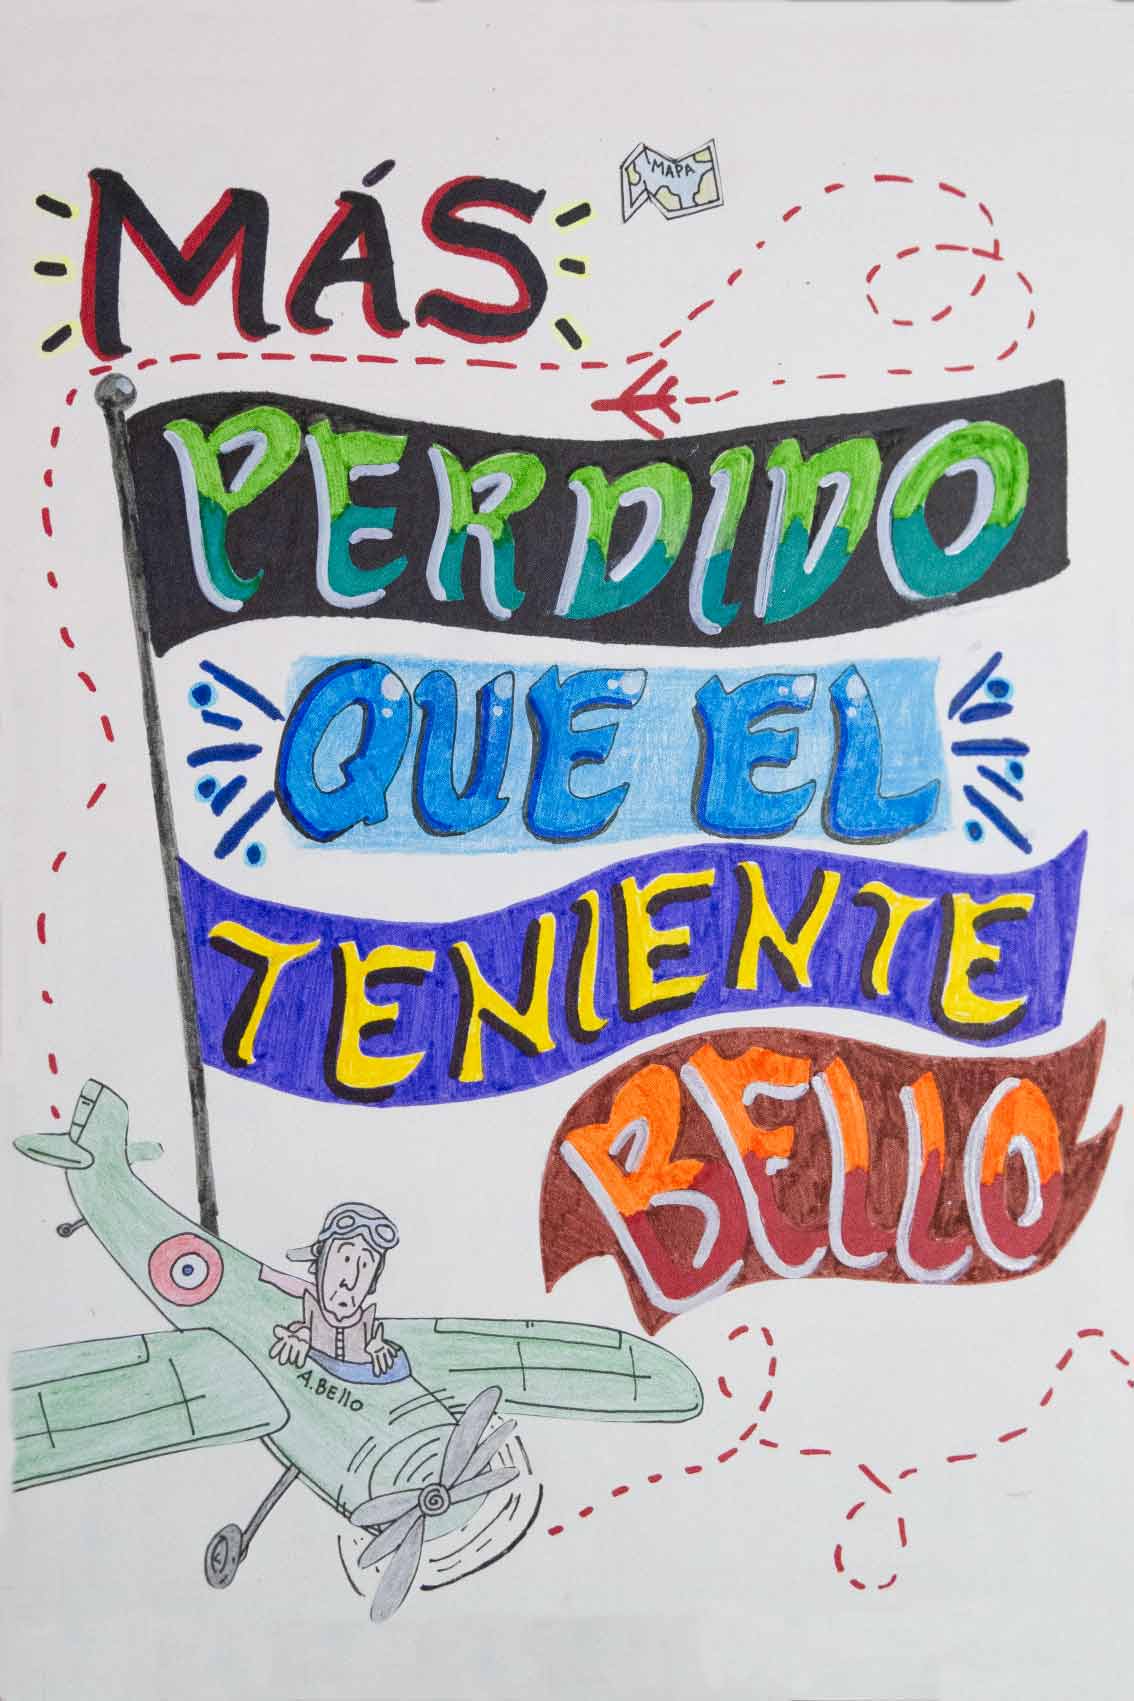 MÁS
MAPA
PERDIDO
QUE EL
TENIENTE
BELLO
A. BEllo